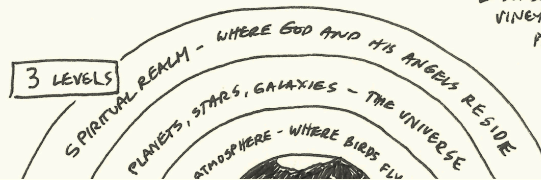 VINEY
3 LEVELS
SPIRITUAL REALM - WHERE GOD AND HIS ANGELS RESIDE
PLANETS, STARS, GALAXIES - THE UNIVERSE
ATMOSPHERE - WHERE BIRDS FLY